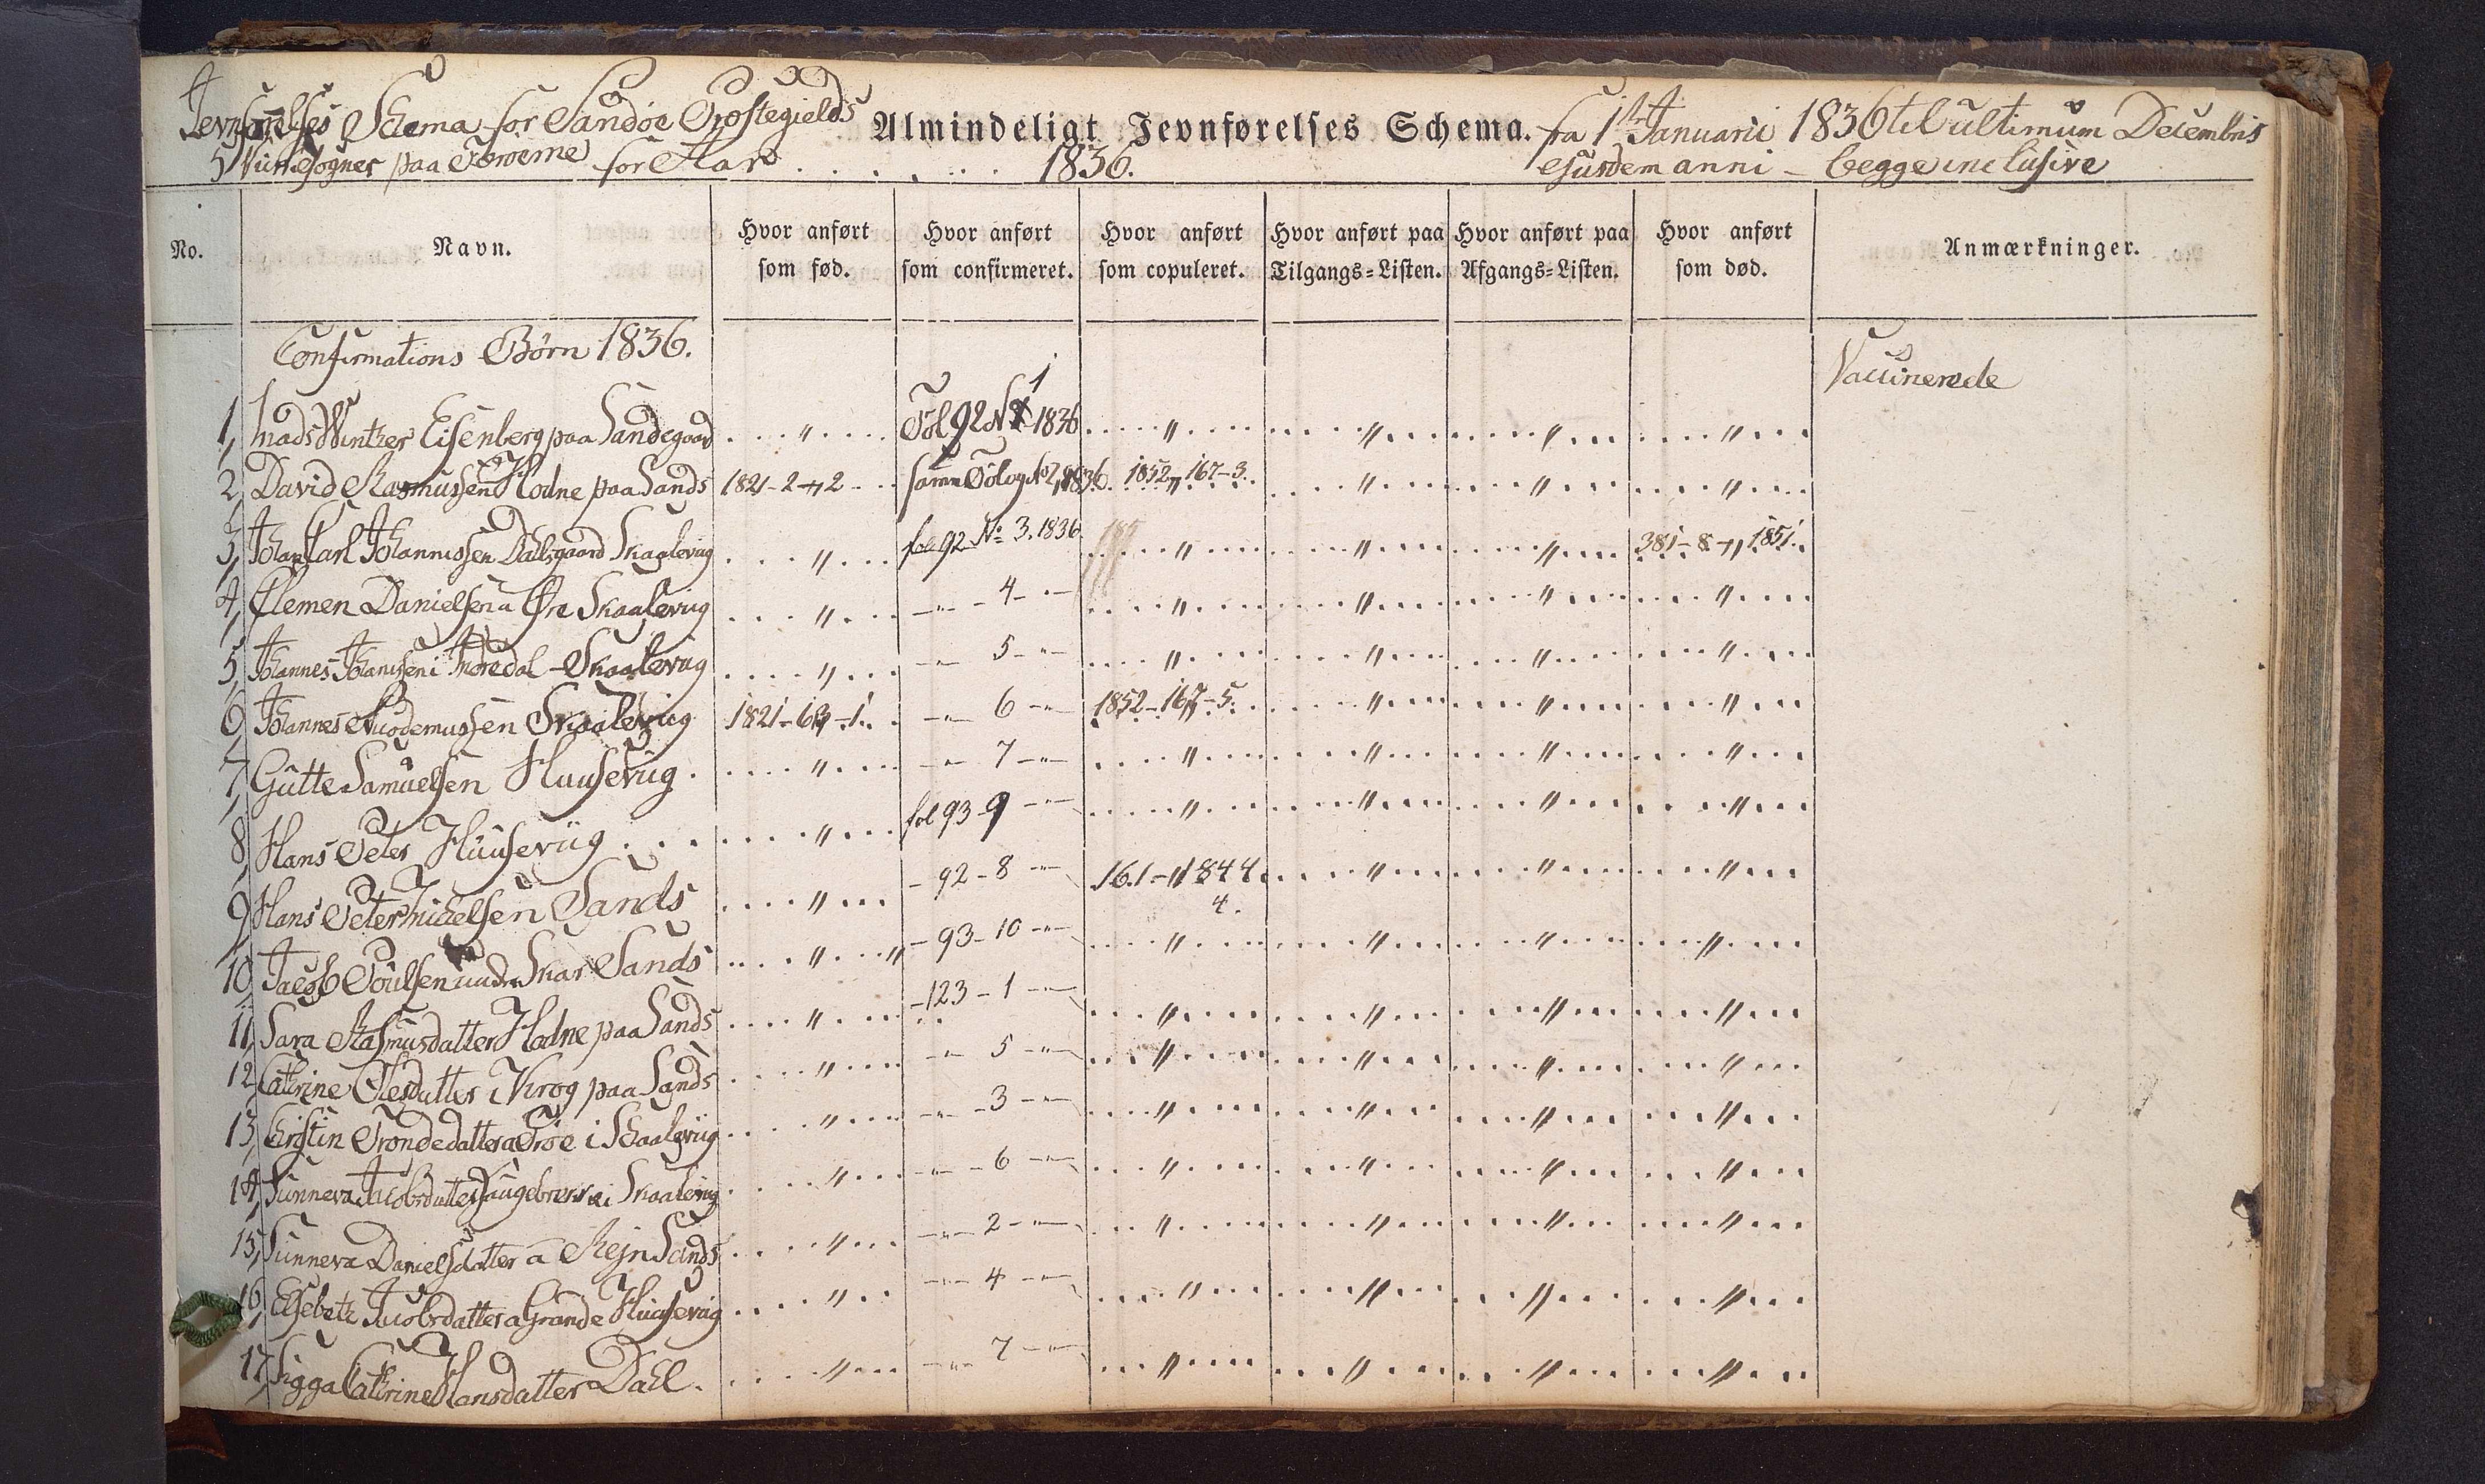 Jevnførelses Schema for Sandøe Præstegields Almindeligt Jevnførelses Schema. fra 1ste Januarii 1836 til ultimum Decembris
5 Kirkesogner paa Færoerne for Aar . . . . . . . 1836. ejusdem anni – begge inclusive
No. Navn. Hvor anført som fød. Hvor anført som confirmeret. Hvor anført som copuleret. Hvor anført paa Tilgangs-Listen. Hvor anført paa Afgangs-Listen. Hvor anført som død. Anmærkninger.
Confirmations Børn 1836. Vaccinerede
1, Mads Winther Eisenberg paa Sandegaard . . . " . . . . Fol 92 N 1 1836 . . . . " . . . . . . . . " . . . . . . . " . . . . . . . " . . .
2, David Rasmussen Hodne paa Sands 1821-2-"-2 - . . samme Folog No 2, 1836. 1852, 167-3. . . . . " . . . . . . . " . . . . . . . " . . . .
3, Johan Carl Johannessen Dalsgaard Skaalevug . . . " . . . fol 92 No 3. 1836 . . . . " . . . . . . . . " . . . . . . . " . . . . 381-8-"-1851.
4, Clemen Danielsen a Øre Skaalevug . . . " . . . -"- - 4 - "- . . . . " . . . . . . . . " . . . . . . . " . . . . . . . " . . . .
5, Johannes Johansen i Troedal - Skaalevug . . . . " . . . -"- 5 - "- . . . . " . . . . . . . . " . . . . . . . " . . . . . . . " . . . .
6, Johannes Nicodemussen Skaalevug 1821-63-1. . . -"- 6 - "- 1852-167-5. . . . . " . . . . . . . " . . . . . . . " . . .
7, Gutte Samuelsen Huusevug . . . . . " . . . . -"- 7 - "- . . . . " . . . . . . . . " . . . . . . . " . . . . . . . " . . .
8, Hans Peter Huusevüg . . . . . . . " . . . fol 93 - 9 - "- . . . . " . . . . . . . . " . . . . . . . " . . . . . . . " . . .
9, Hans Peter Michelsen Sands . . . . " . . . - 92 - 8 - "- 161-"1844. 4. . . . . " . . . . . . . " . . . . . . . " . . .
10, Jacob Poulsen under Skar Sands . . . . " . . . " - 93 - 10 - "- . . . . " . . . . . . . . " . . . . . . . " . . . . . . . " . . .
11, Sara Rasmusdatter Hodne paa Sands . . . . " . . . . -123 - 1 - "- . . . " . . . . . . . . " . . . . . . . " . . . . . . . " . . .
12, Cathrine Olesdatter i Krog paa Sands . . . . " . . . . -"- 5 - "- . . . " . . . . . . . . " . . . . . . . " . . . . . . . " . . .
13, Kirstin Trondedatter a Trøe i Skaalevug . . . . " . . . . -"- - 3 - "- . . . . " . . . . . . . . " . . . . . . . " . . . . . . . " . . .
14, Sunneva Jacobsdatter Haugebrekke i Skaalevug . . . . " . . . -"- - 6 - "- . . . " . . . . . . . . " . . . . . . . " . . . . . . . " . . .
15, Sunneva Danielsdatter a Rejn Sands . . . . " . . . -"- - 2 - "- . . . " . . . . . . . . " . . . . . . . " . . . . . . . " . . .
16, Elsebeth Jacobsdatter a Grande Huusevug . . . . " . . -"- - 4 - "- . . . . " . . . . . . . . " . . . . . . . " . . . . . . . " . . .
17, Sigga Cathrine Hansdatter Dahl. . . . . " . . . -"- - 7 - "- . . . " . . . . . . . . " . . . . . . . " . . . . . . . " . . .